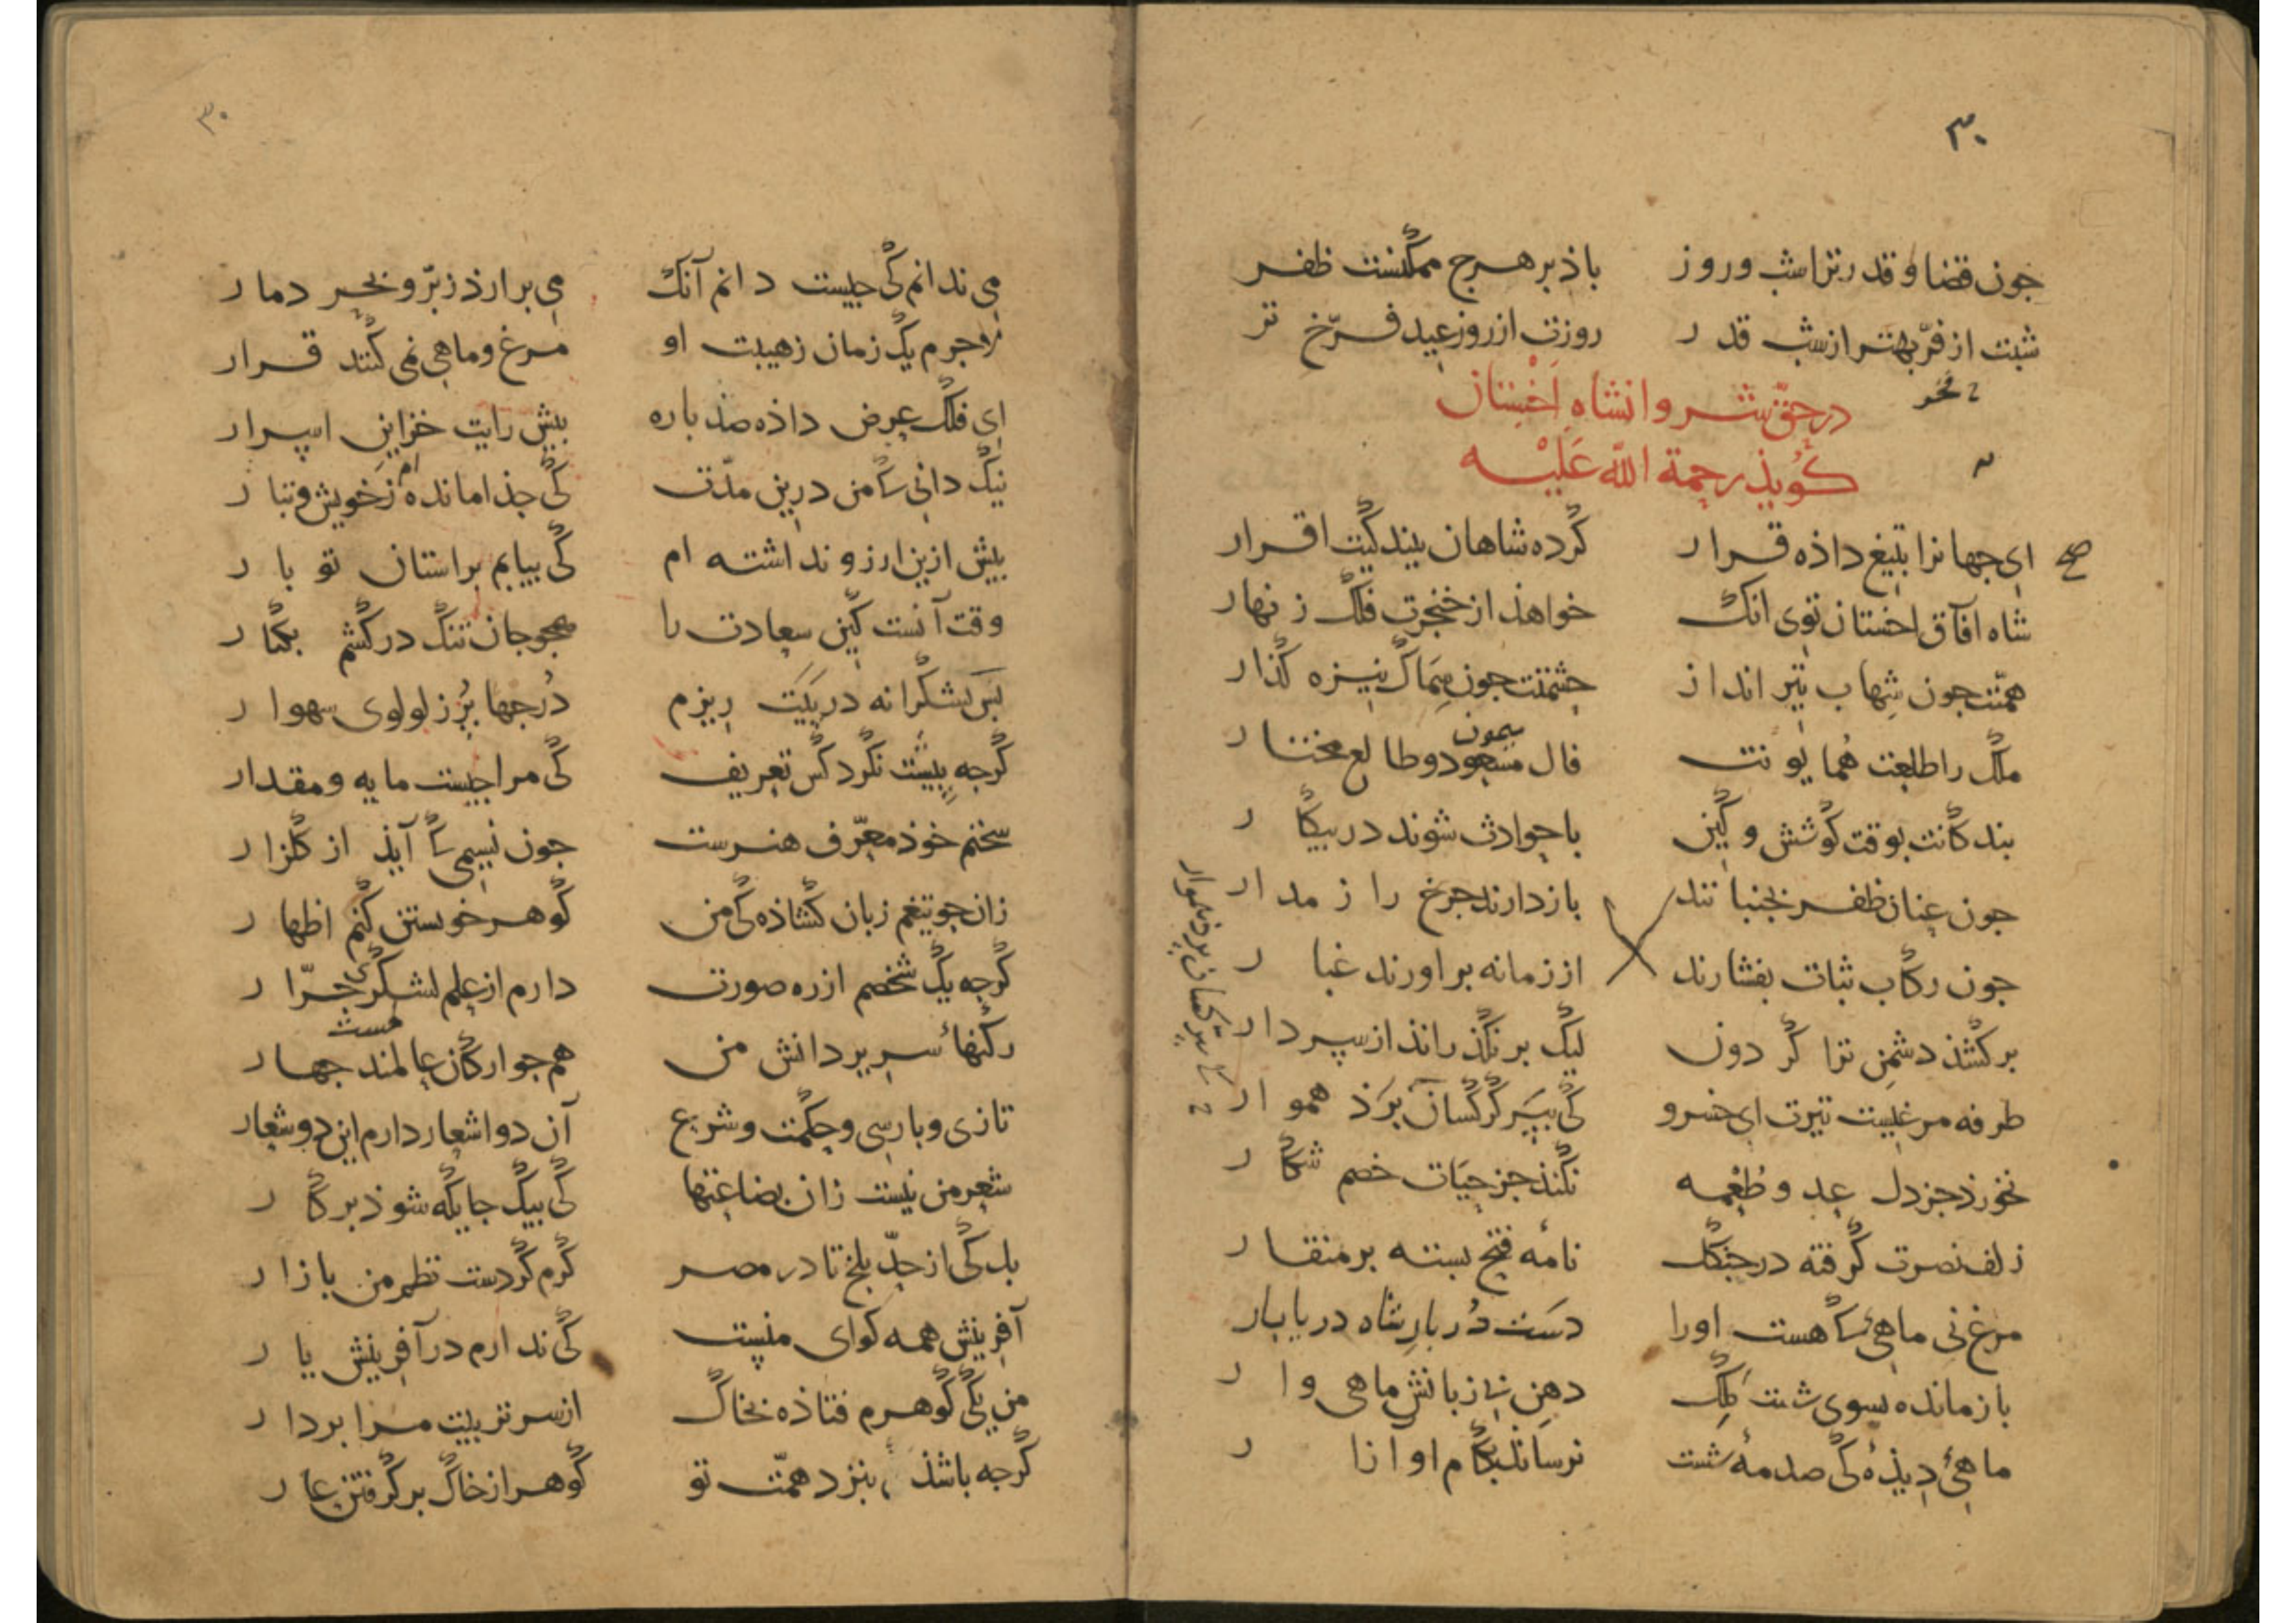 ۳۰
جون قضا و قدر ترا شب وروز باذ بر هرج ممکنست ظفر
شبت از فرّ بهتر از شب قدر روزت از روز عید فرّخ تر
در حقّ شروانشاه اخستان
کوید رحمة الله علیه
ای جهانرا بتیغ داذه قرار کرده شاهان ببندکیت اقرار
شاه آفاق اخستان توی انک خواهذ از خنجرت فلک زنهار
همّتت جون شهاب تیر انداز جشمتت جون سماک نیزه کذار
ملک را طلعت همایونت فال مسعود و طالع مختار
میمون
بندکانت بوقت کوشش و کین با حوادث شوند در بیکار
جون عنان ظفر بجنبانند باز دارند جرخ را ز مدار
جون رکاب ثبات بفشارند از زمانه براورند غبار
برکشذ دشمن ترا کردون لیک برنکذراند از سر دار
طرفه مرغیست تیرت ای خسرو کی ببر کرکسان برذ هموار
نخورذ جز دل عدو طعمه نکند جز حیات خصم شکار
زلف نصرت کرفته در جنکل نامه فتح بسته بر منقار
مرغ نی ماهی کا هست اورا دست دربار شاه دریا بار
باز مانده بسوی شست ملک دهن بی زبانش ماهی وار
ماهی دیذه کی صدمه شست نرساند بکام او آزار
۳۰
می ندانم کی جیست دانم آنک می برارذ ز برّ و بحر دمار
لاجرم یک زمان ز هیبت او مرغ و ماهی نمی کنند قرار
ای فلک عرض داذه صذ باره بیش رایت خزاین اسرار
نیک دانی کا من درین مدّت کی جذا مانده‌ام ز خویش و تبار
بیش ازین ارزو نداشته ام کی بیابم براستان تو بار
وقت آنست کین سعادت را همجو جان تنک درکشم بکنار
بس بشکرانه در بیت ریزم درجها بر ز لولوی شهوار
کرجه بیشت نکرد کس تعریف کی مرا جیست مایه و مقدار
سخنم خوذ معرّف هنرست جون نسیمی کا آیذ از کلزار
زان جو تیغم زبان کشاذه کی من کوهر خویشتن کنم اظهار
کرجه یک شخصم از ره صورت دارم از علم لشکری جرّار
رکنهاء سریر دانش من همجو ارکان عالمند جهار
هست
تازی و بارسی و حکمت و شرع آن دو اشعار دارم این دو شعار
شعر من نیست زان بضاعتها کی بیک جایکه شوذ بر کار
بل کی از حدّ بلخ تا در مصر کرم کردست نظم من بازار
آفرینش همه کوای منست کی ندارم در آفرینش یار
من یکی کوهرم فتاذه بخاک از سر تربیت مرا بردار
کرجه باشذ بنزد همّت تو کوهر از خاک برکرفتن عار